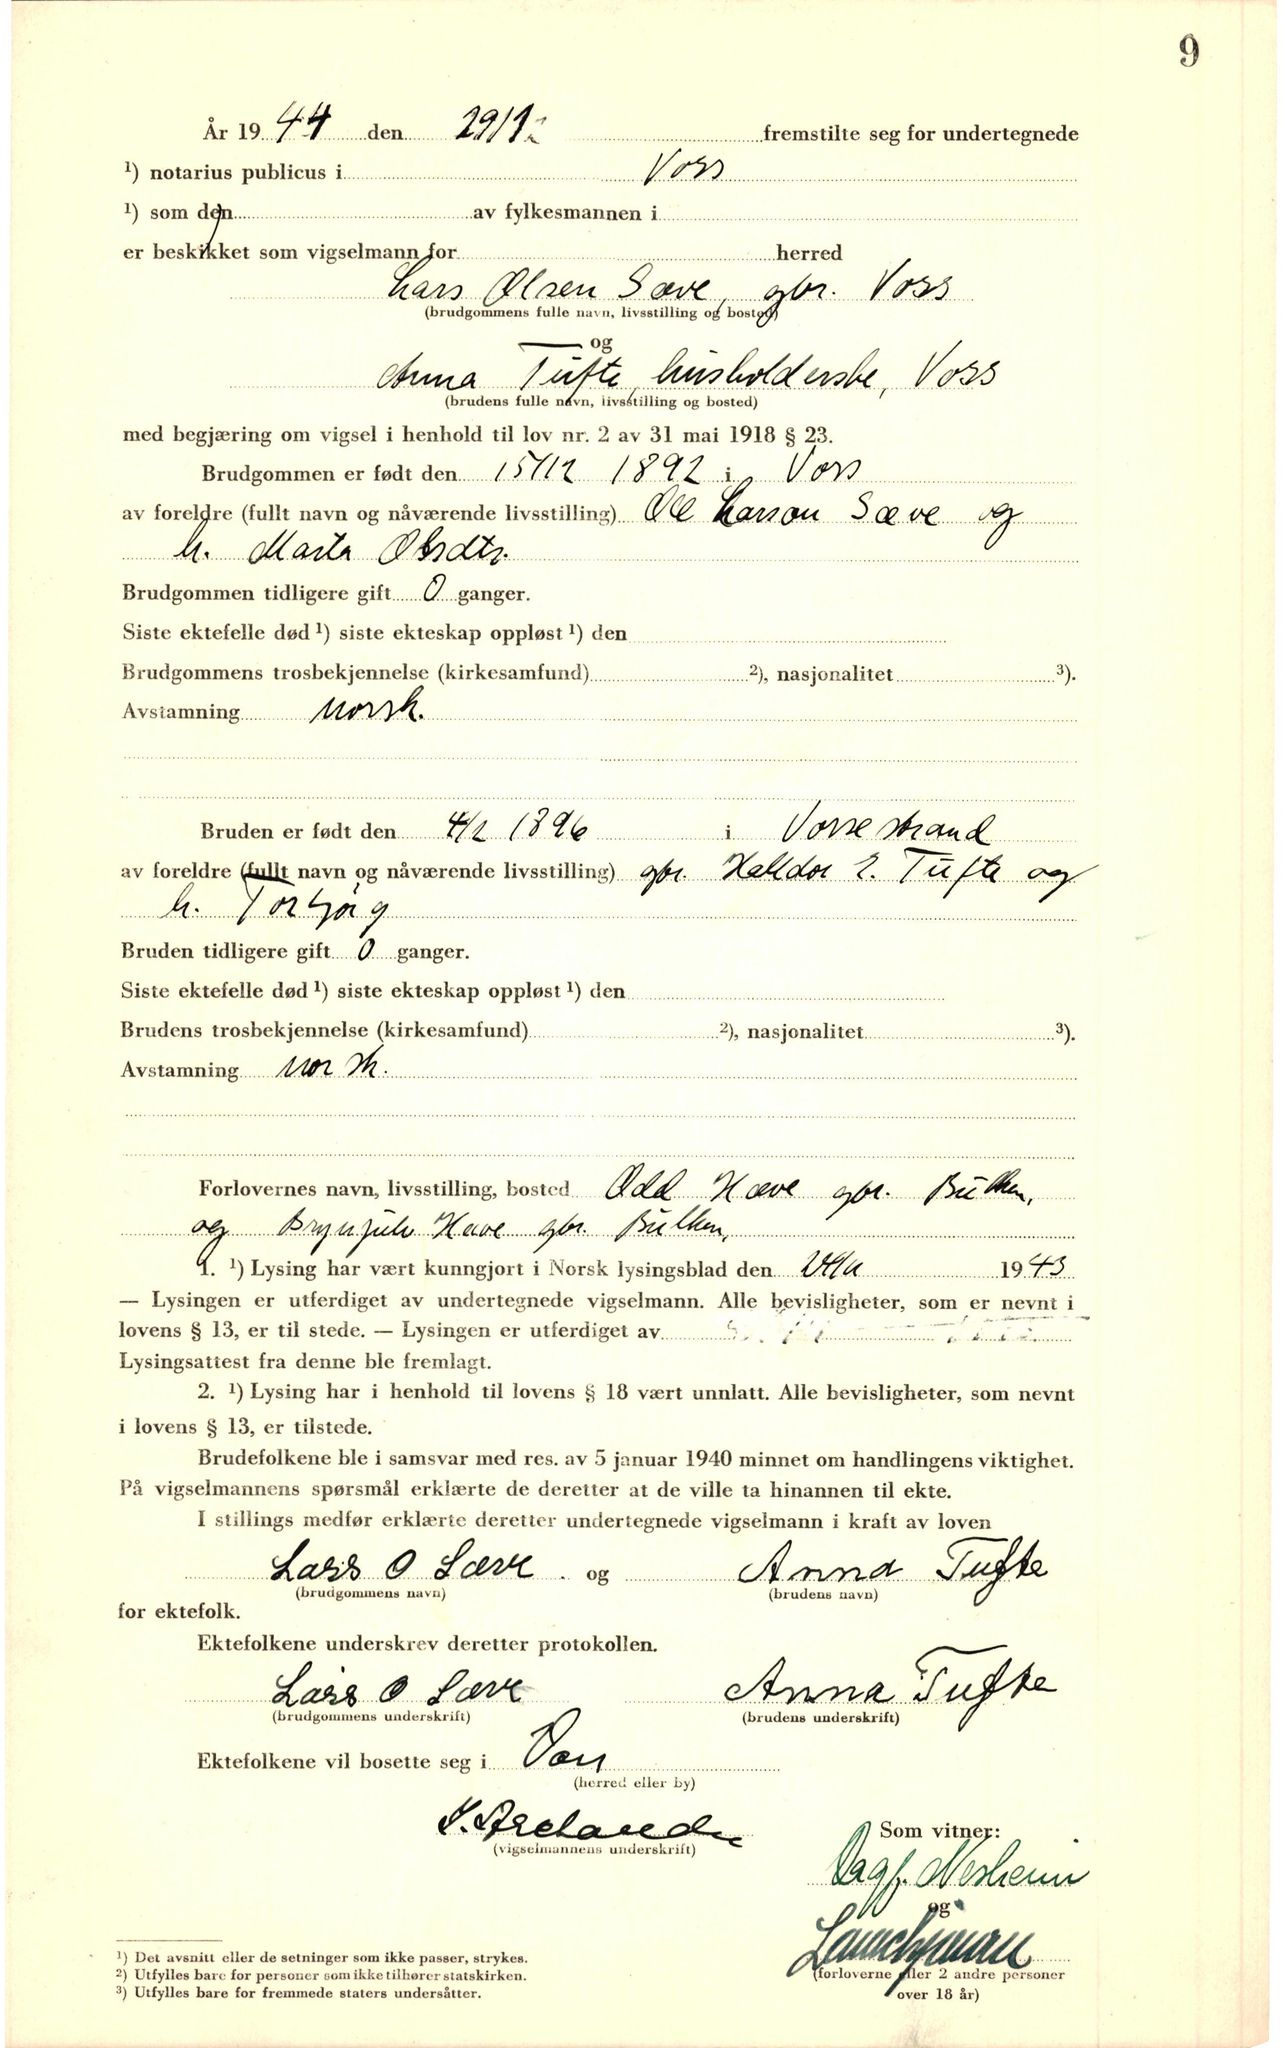 9
År 19 44 den 29/12 fremstilte seg for undertegnede
¹) notarius publicus i Voss
¹) som den av fylkesmannen i
er beskikket som vigselmann for herred
Lars Olsen Sæve, gbr. Voss
(brudgommens fulle navn, livsstilling og bosted)
og
Anna Tufte, husholderske, Voss
(brudens fulle navn, livsstilling og bosted)
med begjæring om vigsel i henhold til lov nr. 2 av 31 mai 1918 § 23.
Brudgommen er født den 15/12 1892 i Voss
av foreldre (fullt navn og nåværende livsstilling) Ole Larsen Sæve og
h. Marta Olsdtr.
Brudgommen tidligere gift 0 ganger.
Siste ektefelle død ¹) siste ekteskap oppløst ¹) den
Brudgommens trosbekjennelse (kirkesamfund) ²), nasjonalitet ³).
Avstamning norsk.
Bruden er født den 4/2 1896 i Vossestrand
av foreldre (fullt navn og nåværende livsstilling) gbr. Halldor E. Tufte og
h. Torbjørg
Bruden tidligere gift 0 ganger.
Siste ektefelle død ¹) siste ekteskap oppløst ¹) den
Brudens trosbekjennelse (kirkesamfund) ²), nasjonalitet ³).
Avstamning norsk.
Forlovernes navn, livsstilling, bosted Odd Hæve gbr. Bulken,
og Brynjulv Hæve gbr. Bulken,
1. ¹) Lysing har vært kunngjort i Norsk lysingsblad den 1943
— Lysingen er utferdiget av undertegnede vigselmann. Alle bevisligheter, som er nevnt i
lovens § 13, er til stede. — Lysingen er utferdiget av
Lysingsattest fra denne ble fremlagt.
2. ¹) Lysing har i henhold til lovens § 18 vært unnlatt. Alle bevisligheter, som nevnt
i lovens § 13, er tilstede.
Brudefolkene ble i samsvar med res. av 5 januar 1940 minnet om handlingens viktighet.
På vigselmannens spørsmål erklærte de deretter at de ville ta hinannen til ekte.
I stillings medfør erklærte deretter undertegnede vigselmann i kraft av loven
Lars O Sæve og Anna Tufte
(brudgommens navn) (brudens navn)
for ektefolk.
Ektefolkene underskrev deretter protokollen.
Lars O Sæve Anna Tufte
(brudgommens underskrift) (brudens underskrift)
Ektefolkene vil bosette seg i Voss
(herred eller by)
(vigselmannens underskrift)
Som vitner:
Dagf. Nesheim
og
(forloverne eller 2 andre personer
over 18 år)
¹) Det avsnitt eller de setninger som ikke passer, strykes.
²) Utfylles bare for personer som ikke tilhører statskirken.
³) Utfylles bare for fremmede staters undersåtter.